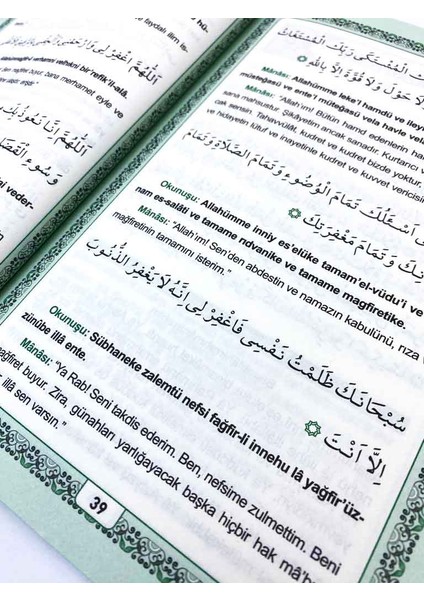 faydalı ilim is-
hû.
اَللّٰهُمَّ اغْفِرْ لِى وَارْحَمْنِى
bana merhamet eyle ve
اَللّٰهُمَّ اِنَّا نَعُوذُ بِكَ
وَسُوءِ الْقَضَاءِ
el veder-
الْمُشْتَكٰى وَبِكَ الْمُسْتَغَاثُ
لَا حَوْلَ وَلَا قُوَّةَ اِلَّا بِاللّٰهِ
Okunuşu: Allahümme leke'l hamdü ve ileyk
müsteğasü ve ente'l müteğasü vela havle vela
Mânâsı: "Allah'ım! Bütün hamd edenlerin ham
sana mahsustur. Şikâyetim ancak sanadır. Kurtarıcı v
cak sensin. Tahavvülâk, kudret ve kudret bizde yoktur.
ve hidayetin lütuf ve inayetinle kudret ve kuvvet vericisin
اَسْئَلُكَ تَمَامَ الْوُضُوءِ وَتَمَامَ الصَّلَاةِ وَتَمَامَ
وَتَمَامَ مَغْفِرَتِكَ
Okunuşu: Allahümme inniy es'elüke tamam'el-vüdu'i ve
nam es-salâti ve tamame rıdvanike ve tamame magfiretike.
Mânâsı: "Allah'ım! Sen'den abdestin ve namazın kabulünü, rıza v
mağfiretinin tamamını isterim."
سُبْحَانَكَ ظَلَمْتُ نَفْسِى فَاغْفِرْ لِى اِنَّهُ لَا يَغْفِرُ الذُّنُوبَ
اِلَّا اَنْتَ
Okunuşu: Sübhaneke zalemtü nefsi fağfir-li innehu lâ yağfir'üz-
zünûbe illâ ente.
Mânâsı: "Ya Rab! Seni takdis ederim. Ben, nefsime zulmettim. Beni
mağfiret buyur. Zira, günahları yarlığayacak başka hiçbir hak mâ'b
illâ sen varsın."
39